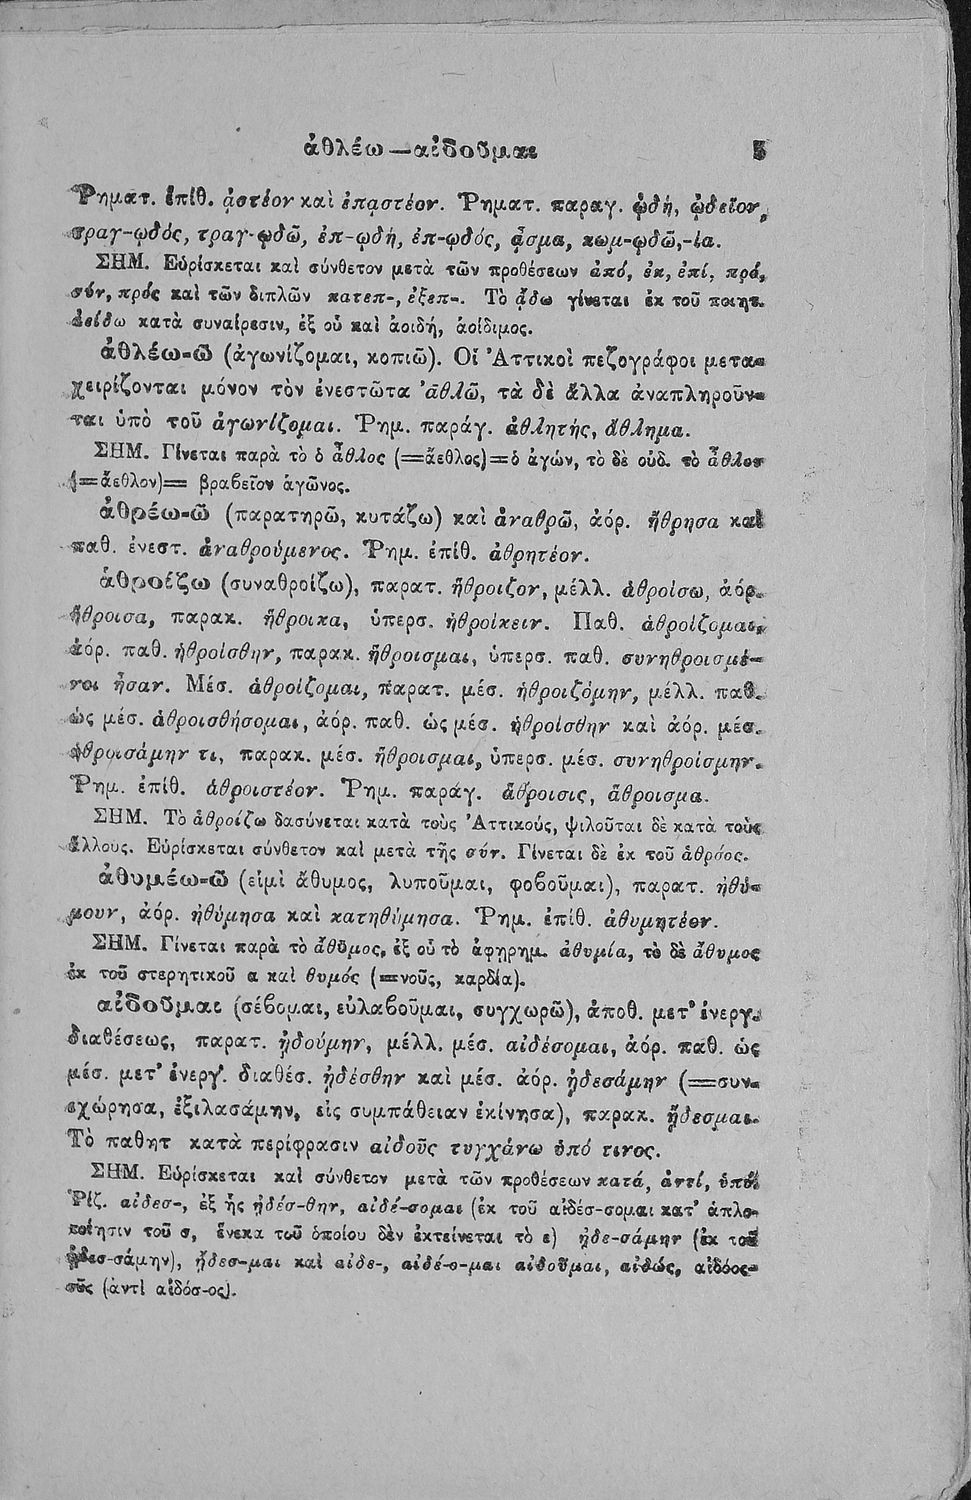 ἀθλέω—αἰδοῦμαι 5
Ῥηματ. ἐπίθ. ᾀστέον καὶ ἐπᾳστέον. Ῥηματ. παραγ. ᾠδή, ᾠδεῖον,
τραγ-ῳδός, τραγ-ῳδῶ, ἐπ-ῳδή, ἐπ-ῳδός, ᾆσμα, κωμ-ῳδῶ,-ία.
ΣΗΜ. Εὑρίσκεται καὶ σύνθετον μετὰ τῶν προθέσεων ἀπό, ἐκ, ἐπί, πρό,
σύν, πρός καὶ τῶν διπλῶν κατεπ-, ἐξεπ-. Τὸ ᾄδω γίνεται ἐκ τοῦ ποιητ.
ἀείδω κατὰ συναίρεσιν, ἐξ οὗ καὶ ἀοιδή, ἀοίδιμος.
ἀθλέω-ῶ (ἀγωνίζομαι, κοπιῶ). Οἱ Ἀττικοὶ πεζογράφοι μετα-
χειρίζονται μόνον τὸν ἐνεστῶτα ἀθλῶ, τὰ δὲ ἄλλα ἀναπληροῦν-
ται ὑπὸ τοῦ ἀγωνίζομαι. Ῥημ. παράγ. ἀθλητής, ἄθλημα.
ΣΗΜ. Γίνεται παρὰ τὸ ὁ ἆθλος (=ἄεθλος)=ὁ ἀγών, τὸ δὲ οὐδ. τὸ ἆθλον
(=ἄεθλον)= βραβεῖον ἀγῶνος.
ἀθρέω-ῶ (παρατηρῶ, κυτάζω) καὶ ἀναθρῶ, ἀόρ. ἤθρησα καὶ
παθ. ἐνεστ. ἀναθρούμενος. Ῥημ. ἐπίθ. ἀθρητέον.
ἁθροίζω (συναθροίζω), παρατ. ἥθροιζον, μέλλ. ἁθροίσω, ἀόρ.
ἥθροισα, παρακ. ἥθροικα, ὑπερσ. ἡθροίκειν. Παθ. ἁθροίζομαι,
ἀόρ. παθ. ἡθροίσθην, παρακ. ἥθροισμαι, ὑπερσ. παθ. συνηθροισμέ-
νοι ἦσαν. Μέσ. ἁθροίζομαι, παρατ. μέσ. ἡθροιζόμην, μέλλ. παθ.
ὡς μέσ. ἁθροισθήσομαι, ἀόρ. παθ. ὡς μέσ. ἡθροίσθην καὶ ἀόρ. μέσ.
ἡθροισάμην τι, παρακ. μέσ. ἥθροισμαι, ὑπερσ. μέσ. συνηθροίσμην.
Ῥημ. ἐπίθ. ἁθροιστέον. Ῥημ. παράγ. ἅθροισις, ἅθροισμα.
ΣΗΜ. Τὸ ἁθροίζω δασύνεται κατὰ τοὺς Ἀττικούς, ψιλοῦται δὲ κατὰ τοὺς
ἄλλους. Εὑρίσκεται σύνθετον καὶ μετὰ τῆς σύν. Γίνεται δὲ ἐκ τοῦ ἁθρόος.
ἀθυμέω-ῶ (εἰμὶ ἄθυμος, λυποῦμαι, φοβοῦμαι), παρατ. ἠθύ-
μουν, ἀόρ. ἠθύμησα καὶ κατηθύμησα. Ῥημ. ἐπίθ. ἀθυμητέον.
ΣΗΜ. Γίνεται παρὰ τὸ ἄθυμος, ἐξ οὗ τὸ ἀφηρημ. ἀθυμία, τὸ δὲ ἄθυμος
ἐκ τοῦ στερητικοῦ α καὶ θυμός (=νοῦς, καρδία).
αἰδοῦμαι (σέβομαι, εὐλαβοῦμαι, συγχωρῶ), ἀποθ. μετ' ἐνεργ.
διαθέσεως, παρατ. ᾐδούμην, μέλλ. μέσ. αἰδέσομαι, ἀόρ. παθ. ὡς
μέσ. μετ' ἐνεργ. διαθέσ. ᾐδέσθην καὶ μέσ. ἀόρ. ᾐδεσάμην (=συν-
εχώρησα, ἐξιλασάμην, εἰς συμπάθειαν ἐκίνησα), παρακ. ᾔδεσμαι.
Τὸ παθητ κατὰ περίφρασιν αἰδοῦς τυγχάνω ὑπό τινος.
ΣΗΜ. Εὑρίσκεται καὶ σύνθετον μετὰ τῶν προθέσεων κατά, ἀντί, ὑπό.
Ῥίζ. αἰδεσ-, ἐξ ἧς ᾐδέσ-θην, αἰδέ-σομαι (ἐκ τοῦ αἰδέσ-σομαι κατ' ἁπλο-
ποίησιν τοῦ σ, ἕνεκα τοῦ ὁποίου δὲν ἐκτείνεται τὸ ε) ᾐδε-σάμην (ἐκ τοῦ
ᾐδεσ-σάμην), ᾔδεσ-μαι καὶ αἰδε-, αἰδέ-ο-μαι αἰδοῦμαι, αἰδώς, αἰδόος-
οῦς (ἀντὶ αἰδόσ-ος).